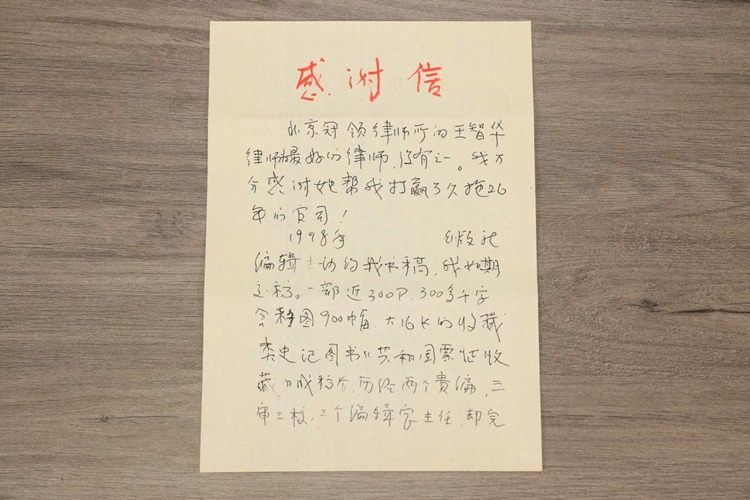 感谢信
北京冠领律师所的王智华
律师是最好的律师,没有之一。我万
分感谢她帮我打赢了久拖26
年的官司!
1998年 出版社
编辑主动约我书稿,我如期
交稿。一部近300P、300多千字
含彩图900幅,大16K的收藏
类史记图书《共和国票证收
藏》成稿后,历经两个责编,三
审三校,三个编辑室主任,却完